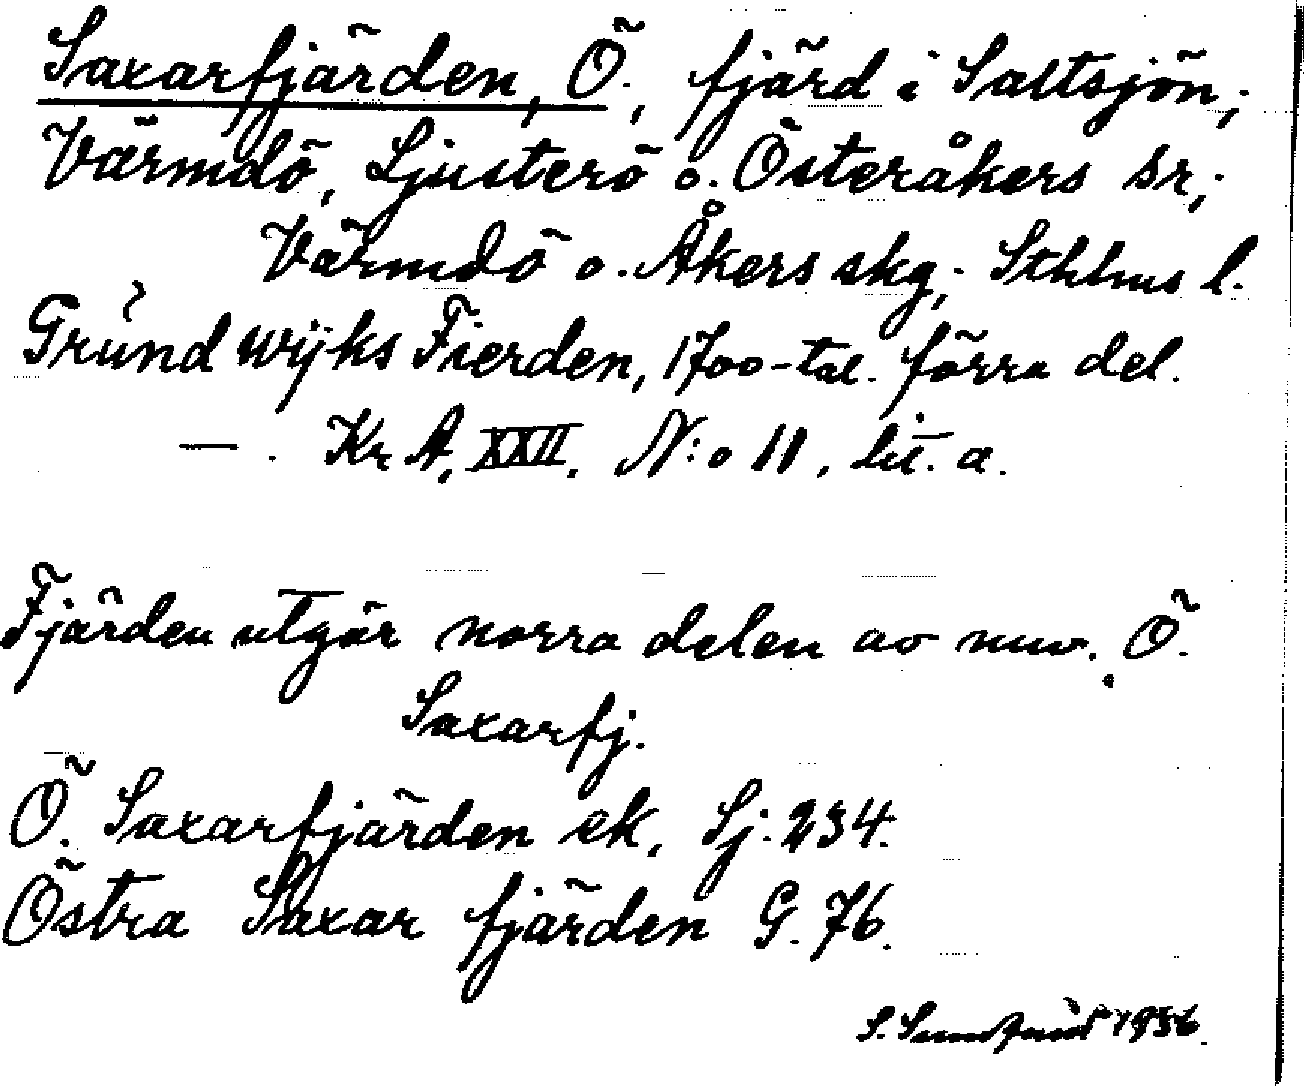 Saxarfjärden, Ö., fjärd i Saltsjön;
Värmdö, Ljusterö o. Österåkers sr;
Värmdö o. Åkers skg; Sthlms l.
Gründ wijks Fierden, 1700-tal. förra del.
—. Kr A, XXII. N:o 11, lit. a.
Fjärden utgör norra delen av nuv. Ö.
Saxarfj.
Ö. Saxarfjärden ek, Sj. 234.
Östra Saxar fjärden G. 76.
S. Sundqvist 1936.